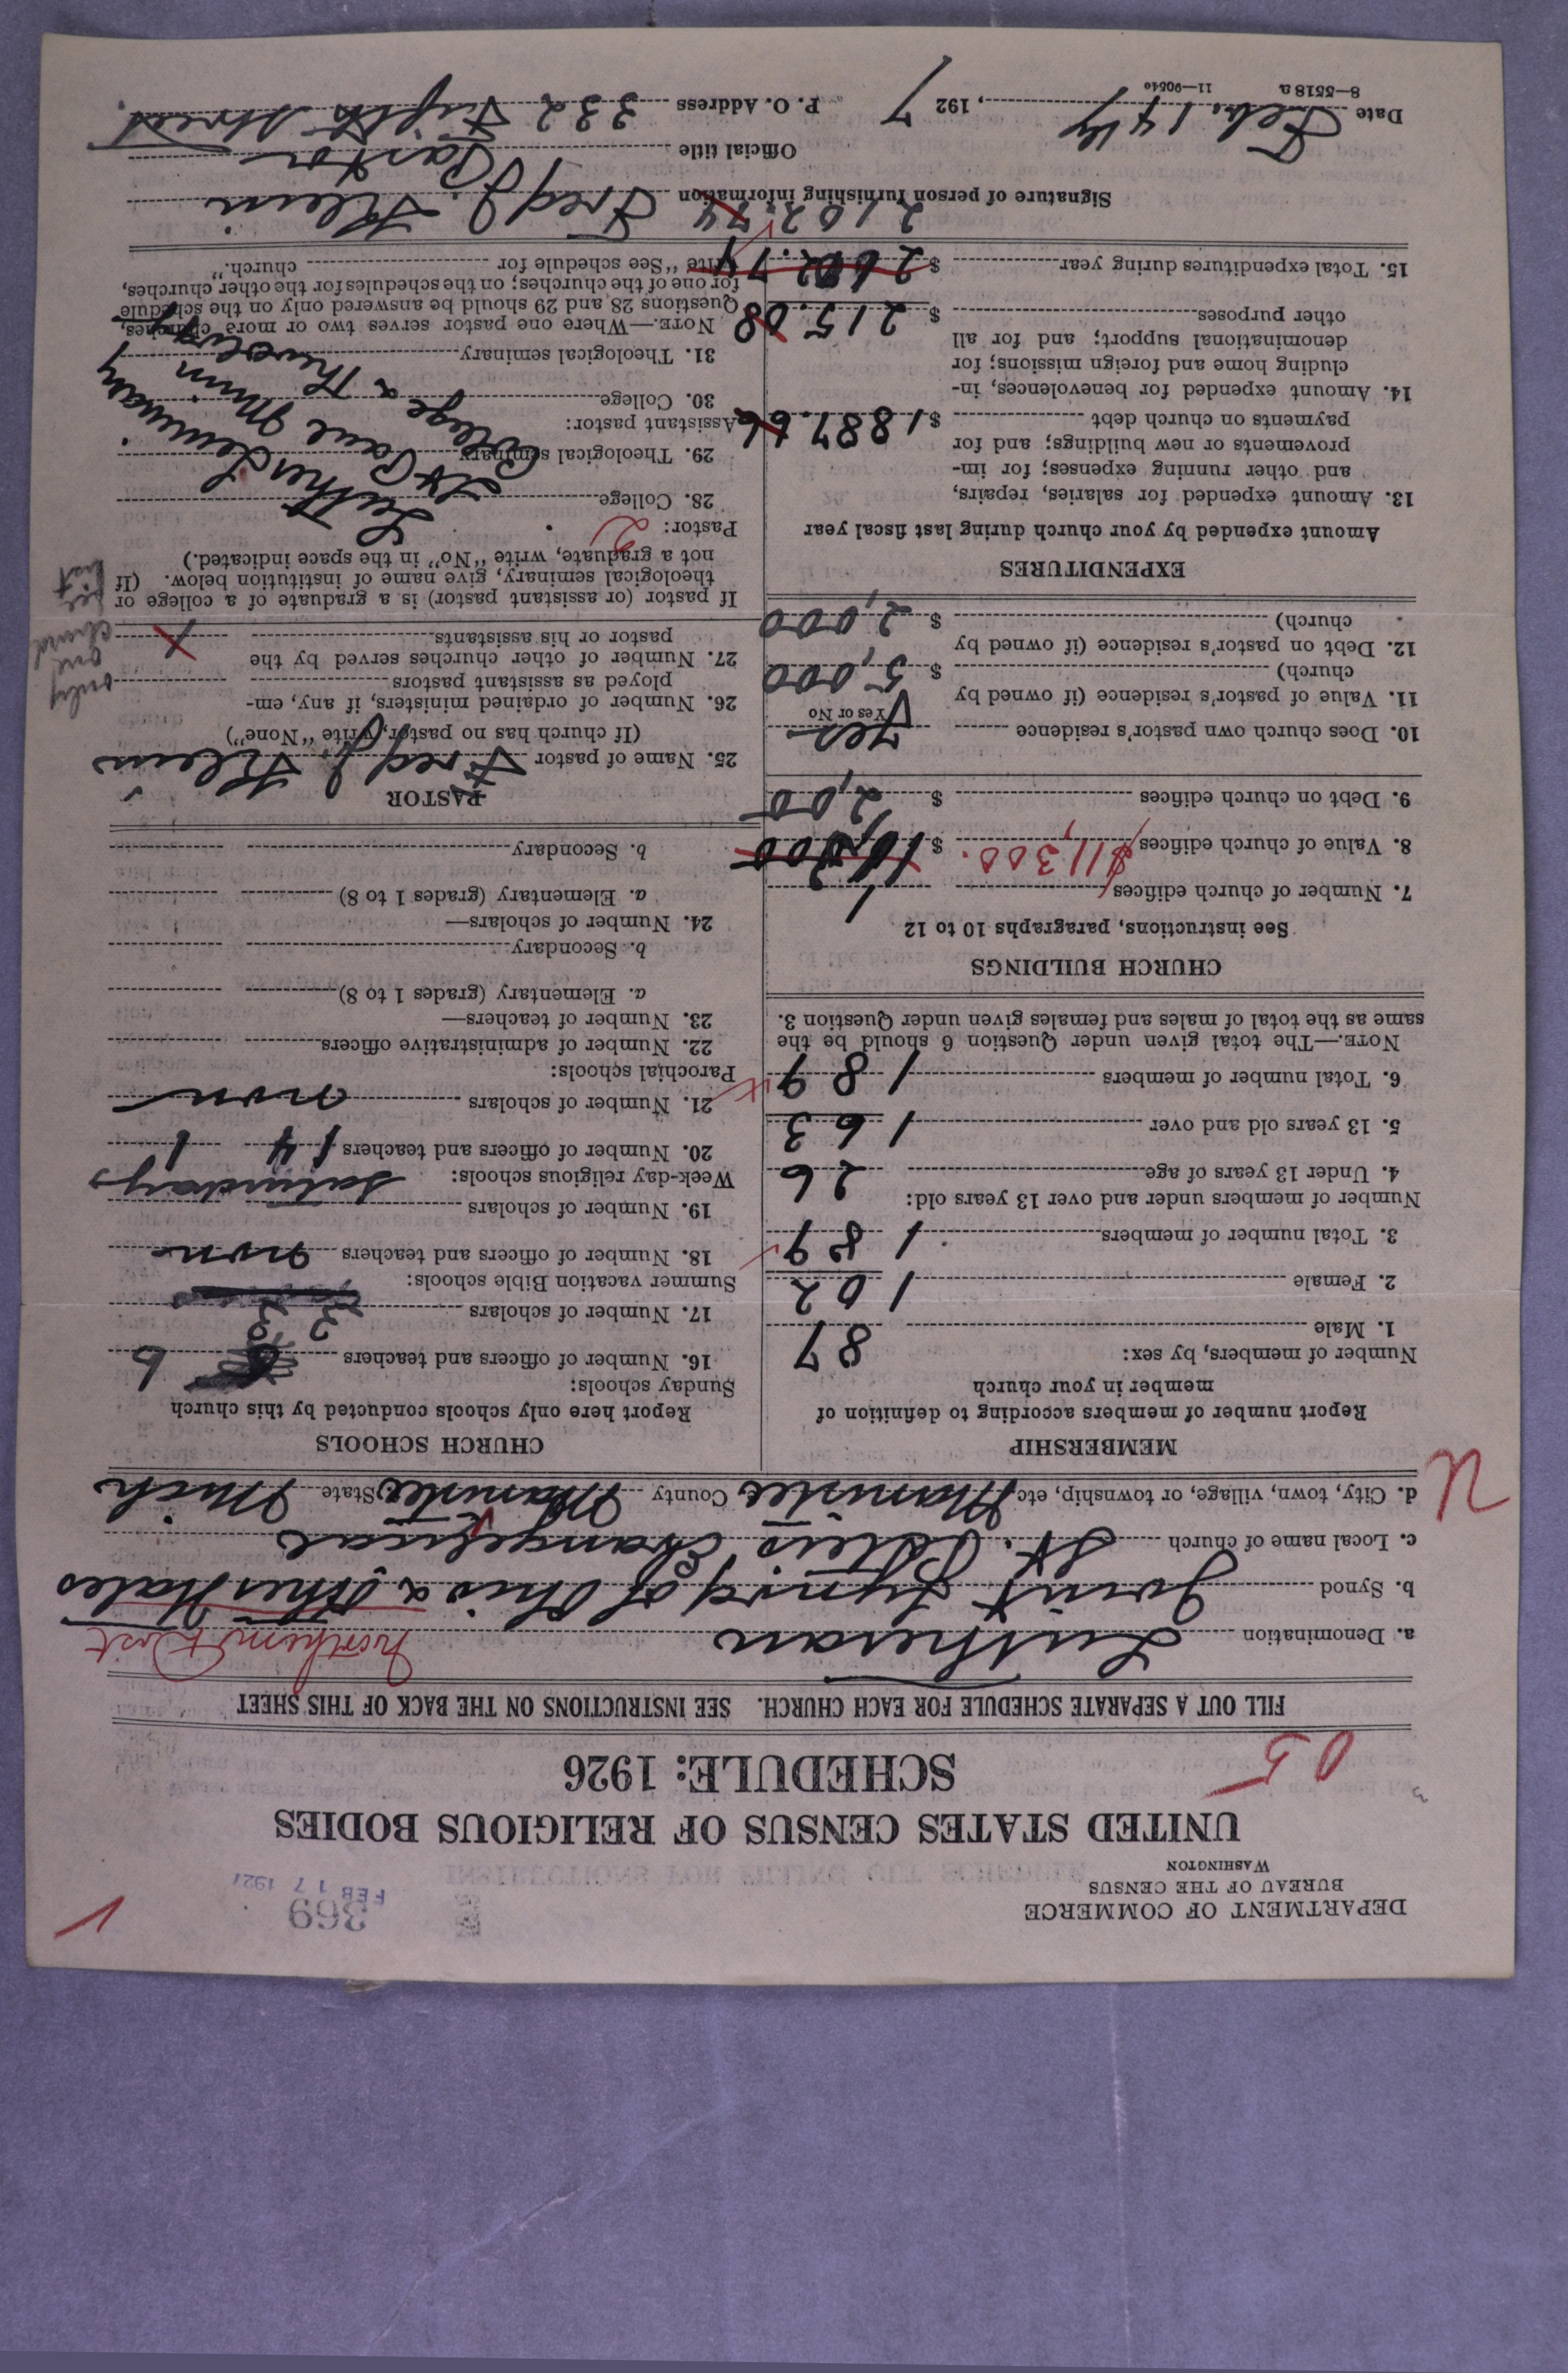 DEPARTMENT OF COMMERCE
BUREAU OF THE CENSUS
WASHINGTON
369
FEB 17 1927
UNITED STATES CENSUS OF RELIGIOUS BODIES
SCHEDULE: 1926
05
FILL OUT A SEPARATE SCHEDULE FOR EACH CHURCH. SEE INSTRUCTIONS ON THE BACK OF THIS SHEET
a. Denomination Lutheran Northern Dist
b. Synod Joint Synod of Ohio & Other States
c. Local name of church St. Peter's Evangelical
d. City, town, village, or township, etc Manistee County Manistee State Mich
U
MEMBERSHIP
Report number of members according to definition of
member in your church
Number of members, by sex:
1. Male 87
2. Female 102
3. Total number of members 189
Number of members under and over 13 years old:
4. Under 13 years of age 26
5. 13 years old and over 163
6. Total number of members 189
NOTE.—The total given under Question 6 should be the
same as the total of males and females given under Question 3.
CHURCH BUILDINGS
See instructions, paragraphs 10 to 12
7. Number of church edifices 1
8. Value of church edifices $11,300. $
9. Debt on church edifices $ 2,00
10. Does church own pastor's residence yes
Yes or No
11. Value of pastor's residence (if owned by
church) $ 5,000
12. Debt on pastor's residence (if owned by
church) $ 2,000
EXPENDITURES
Amount expended by your church during last fiscal year
13. Amount expended for salaries, repairs,
and other running expenses; for im-
provements or new buildings; and for
payments on church debt $ 1887.66
14. Amount expended for benevolences, in-
cluding home and foreign missions; for
denominational support; and for all
other purposes $ 215.08
15. Total expenditures during year $
2102.74
CHURCH SCHOOLS
Report here only schools conducted by this church
Sunday schools:
16. Number of officers and teachers 6
17. Number of scholars
Summer vacation Bible schools:
18. Number of officers and teachers none
19. Number of scholars
Week-day religious schools: Saturdays
20. Number of officers and teachers 1
21. Number of scholars none
Parochial schools:
22. Number of administrative officers
23. Number of teachers—
a. Elementary (grades 1 to 8)
b. Secondary
24. Number of scholars—
a. Elementary (grades 1 to 8)
b. Secondary
PASTOR
25. Name of pastor Fred J. Klein
(If church has no pastor, write "None")
26. Number of ordained ministers, if any, em-
ployed as assistant pastors
27. Number of other churches served by the
pastor or his assistants
only
one
church
per
list
If pastor (or assistant pastor) is a graduate of a college or
theological seminary, give name of institution below. (If
not a graduate, write "No" in the space indicated.)
Pastor: 2
28. College Luther Seminary
29. Theological seminary St Paul Minn
Assistant pastor:
30. College College &
31. Theological seminary
NOTE.—Where one pastor serves two or more churches,
Questions 28 and 29 should be answered only on the schedule
for one of the churches; on the schedules for the other churches,
write "See schedule for church."
Signature of person furnishing information Fred J. Klein
Official title Pastor
Date Feb. 14th, 1927 P. O. Address 332 Fifth Street
8—5518 a 11—90540